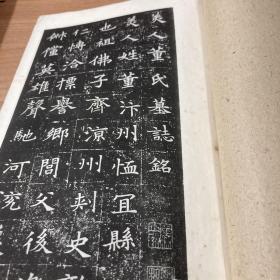 美人董氏墓誌銘
美人姓董汴州恤宜縣
也祖佛子齊涼州刾史
仁博洽標譽鄉閭父後
俶儻英雄聲馳河兗